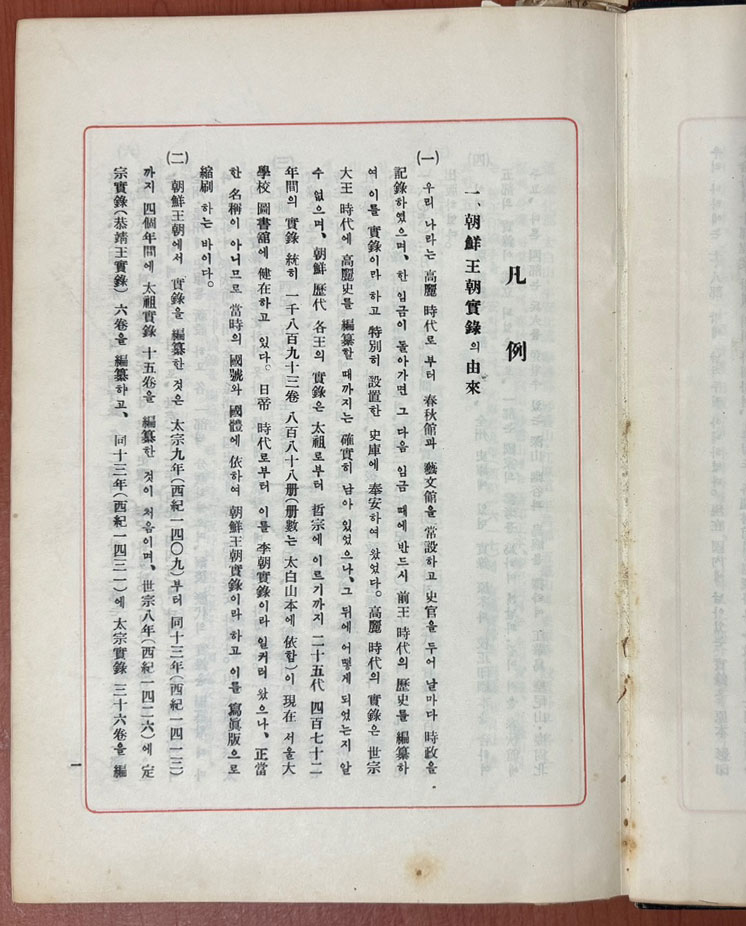 凡例
一、朝鮮王朝實錄의 由來
(一) 우리 나라는 高麗 時代로 부터 春秋館과 藝文館을 常設하고 史官을 두어 날마다 時政을
記錄하였으며、한 임금이 돌아가면 그 다음 임금 때에 반드시 前王 時代의 歷史를 編纂하
여 이를 實錄이라 하고 特別히 設置한 史庫에 奉安하여 왔었다。高麗 時代의 實錄은 世宗
大王 時代에 高麗史를 編纂할 때까지는 確實히 남아 있었으나、그 뒤에 어떻게 되었는지 알
수 없으며、朝鮮 歷代 各王의 實錄은 太祖로부터 哲宗에 이르기까지 二十五代 四百七十二
年間의 實錄 統히 一千八百九十三卷 八百八十八册(册數는 太白山本에 依함)이 現在 서울大
學校 圖書館에 健在하고 있다。日帝 時代로부터 이를 李朝實錄이라 일커러 왔으나、正當
한 名稱이 아니므로 當時의 國號와 國體에 依하여 朝鮮王朝實錄이라 하고 이를 寫眞版으로
縮刷 하는 바이다。
(二) 朝鮮王朝에서 實錄을 編纂한 것은 太宗九年(西紀一四〇九)부터 同十三年(西紀一四一三)
까지 四個年間에 太祖實錄 十五卷을 編纂한 것이 처음이며、世宗八年(西紀一四二六)에 定
宗實錄(恭靖王實錄) 六卷을 編纂하고、同十三年(西紀一四三一)에 太宗實錄 三十六卷을 編
一